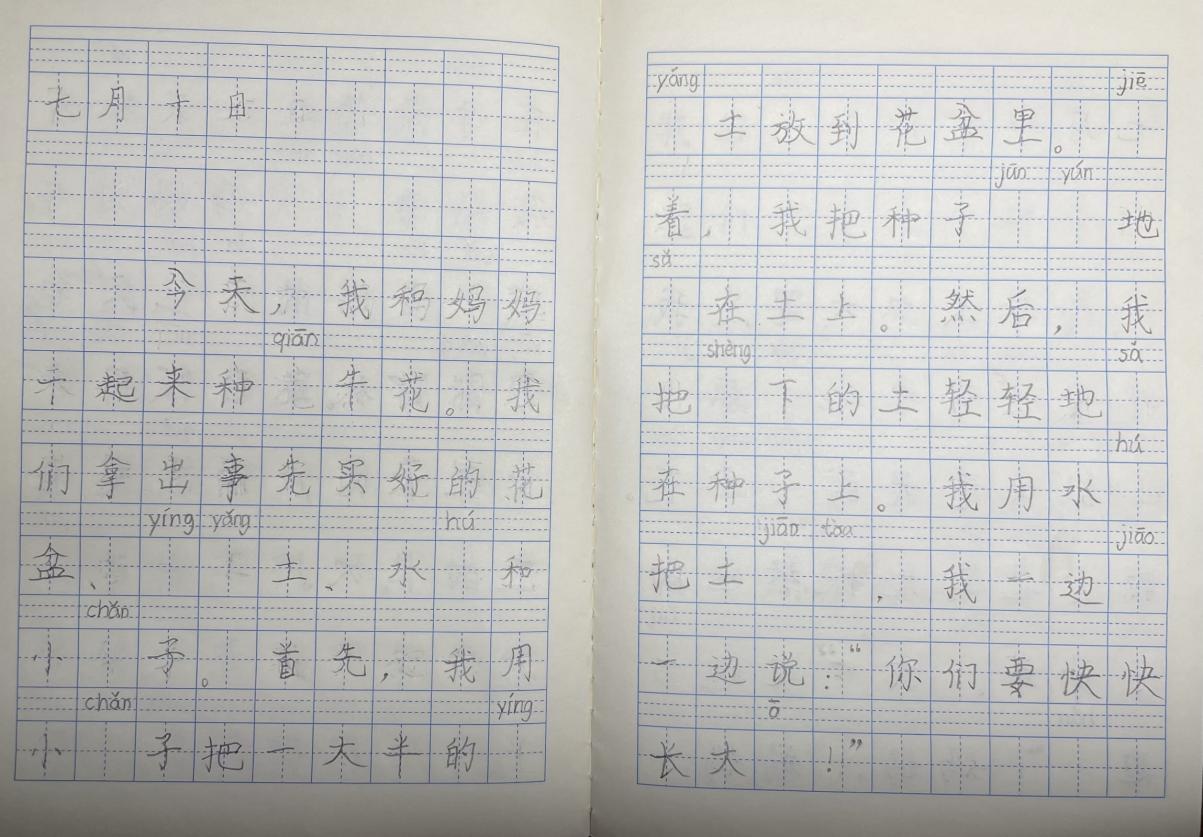 七月十日
今天，我和妈妈
一起来种qiān牛花。我
们拿出事先实好的花
盆、yíng yǎng土、水hú和
小chǎn子。首先，我用
小chǎn子把一大半的yíng
yǎng土放到花盆里。jiē
着，我把种子jūn yún地
sǎ在土上。然后，我
把shèng下的土轻轻地sǎ
在种子上。我用水hú
把土jiāo tòu，我一边jiāo
一边说：“你们要快快
长大ō！”